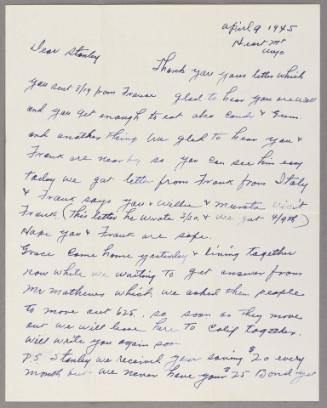 April 9 1945
Heart Mt
Wyo
Dear Stanley
Thank you your letter which
you sent 3/19 from France glad to hear you are well
and you get enough to eat also Candy & Gum
and another thing we glad to hear you &
Frank are near by so you can see him easy
today we get letter from Frank from Italy
& Frank says you & Willie & visit
Frank (This letter he wrote 3/20 & we get 4/9th)
Hope you & Frank are safe.
Grace come home yesterday & living together
now while we waiting to get answer from
Mr Mathews which we asked them people
to move out 625. so soon as they move
out we will leave here to Calif together.
will write you again soon
P.S. Stanley we received your saving $20 every
month but we never have your $25 Bond yet